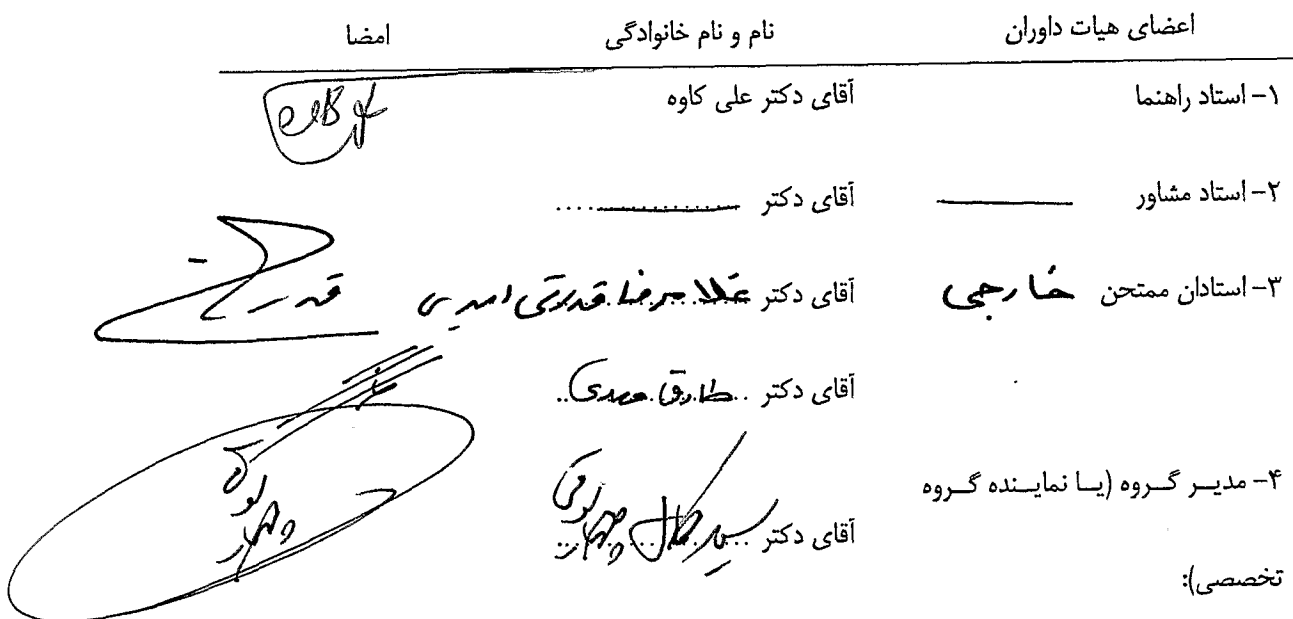 اعضای هیات داوران نام و نام خانوادگی امضا
۱- استاد راهنما آقای دکتر علی کاوه
۲- استاد مشاور آقای دکتر ....
۳- استادان ممتحن خارجی آقای دکتر غلامرضا قدرتی امیری
آقای دکتر طارق مهدی
۴- مدیر گروه (یا نماینده گروه آقای دکتر
تخصصی):